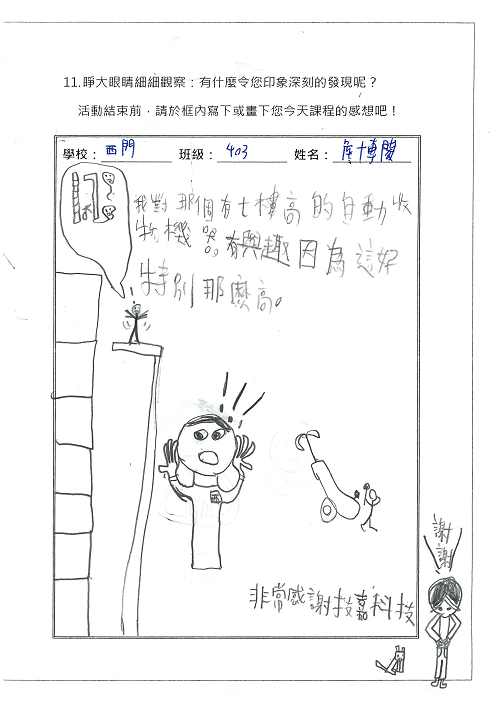 11.睜大眼睛細細觀察：有什麼令您印象深刻的發現呢？
活動結束前，請於框內寫下或畫下您今天課程的感想吧！
學校：西門 班級：403 姓名：
我對那個有七樓高的自動收
物機器有興趣因為這好
特別那麼高。
非常感謝技嘉科技
謝謝